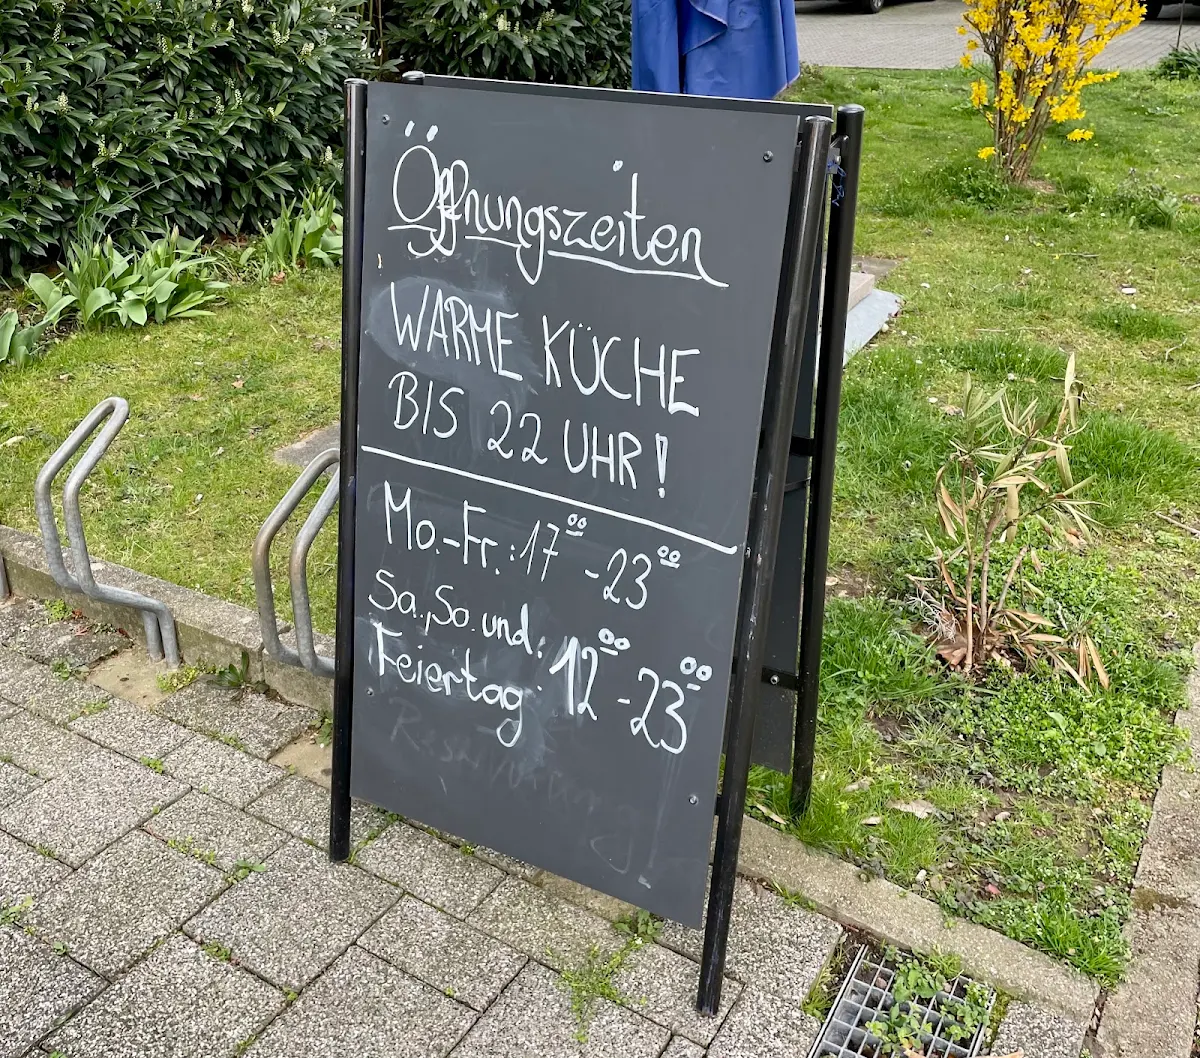 Öffnungszeiten
WARME KÜCHE
BIS 22 UHR!
Mo.-Fr.: 17⁰⁰ - 23⁰⁰
Sa., So. und:
Feiertag: 12⁰⁰ - 23⁰⁰